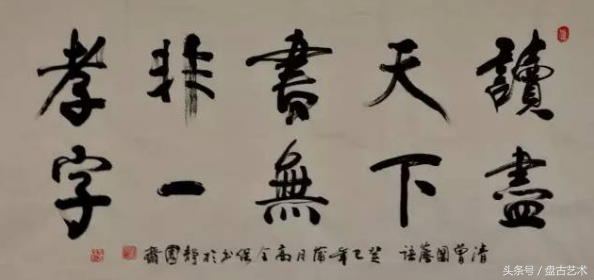 讀盡
天下
書無
非一
孝字
清曾國藩語 癸巳年蒲月高全保书於靜園齋
头条号 / 盘古艺术